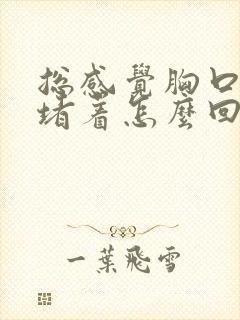 总感覺胸口
堵着怎麼回
一葉飛雪